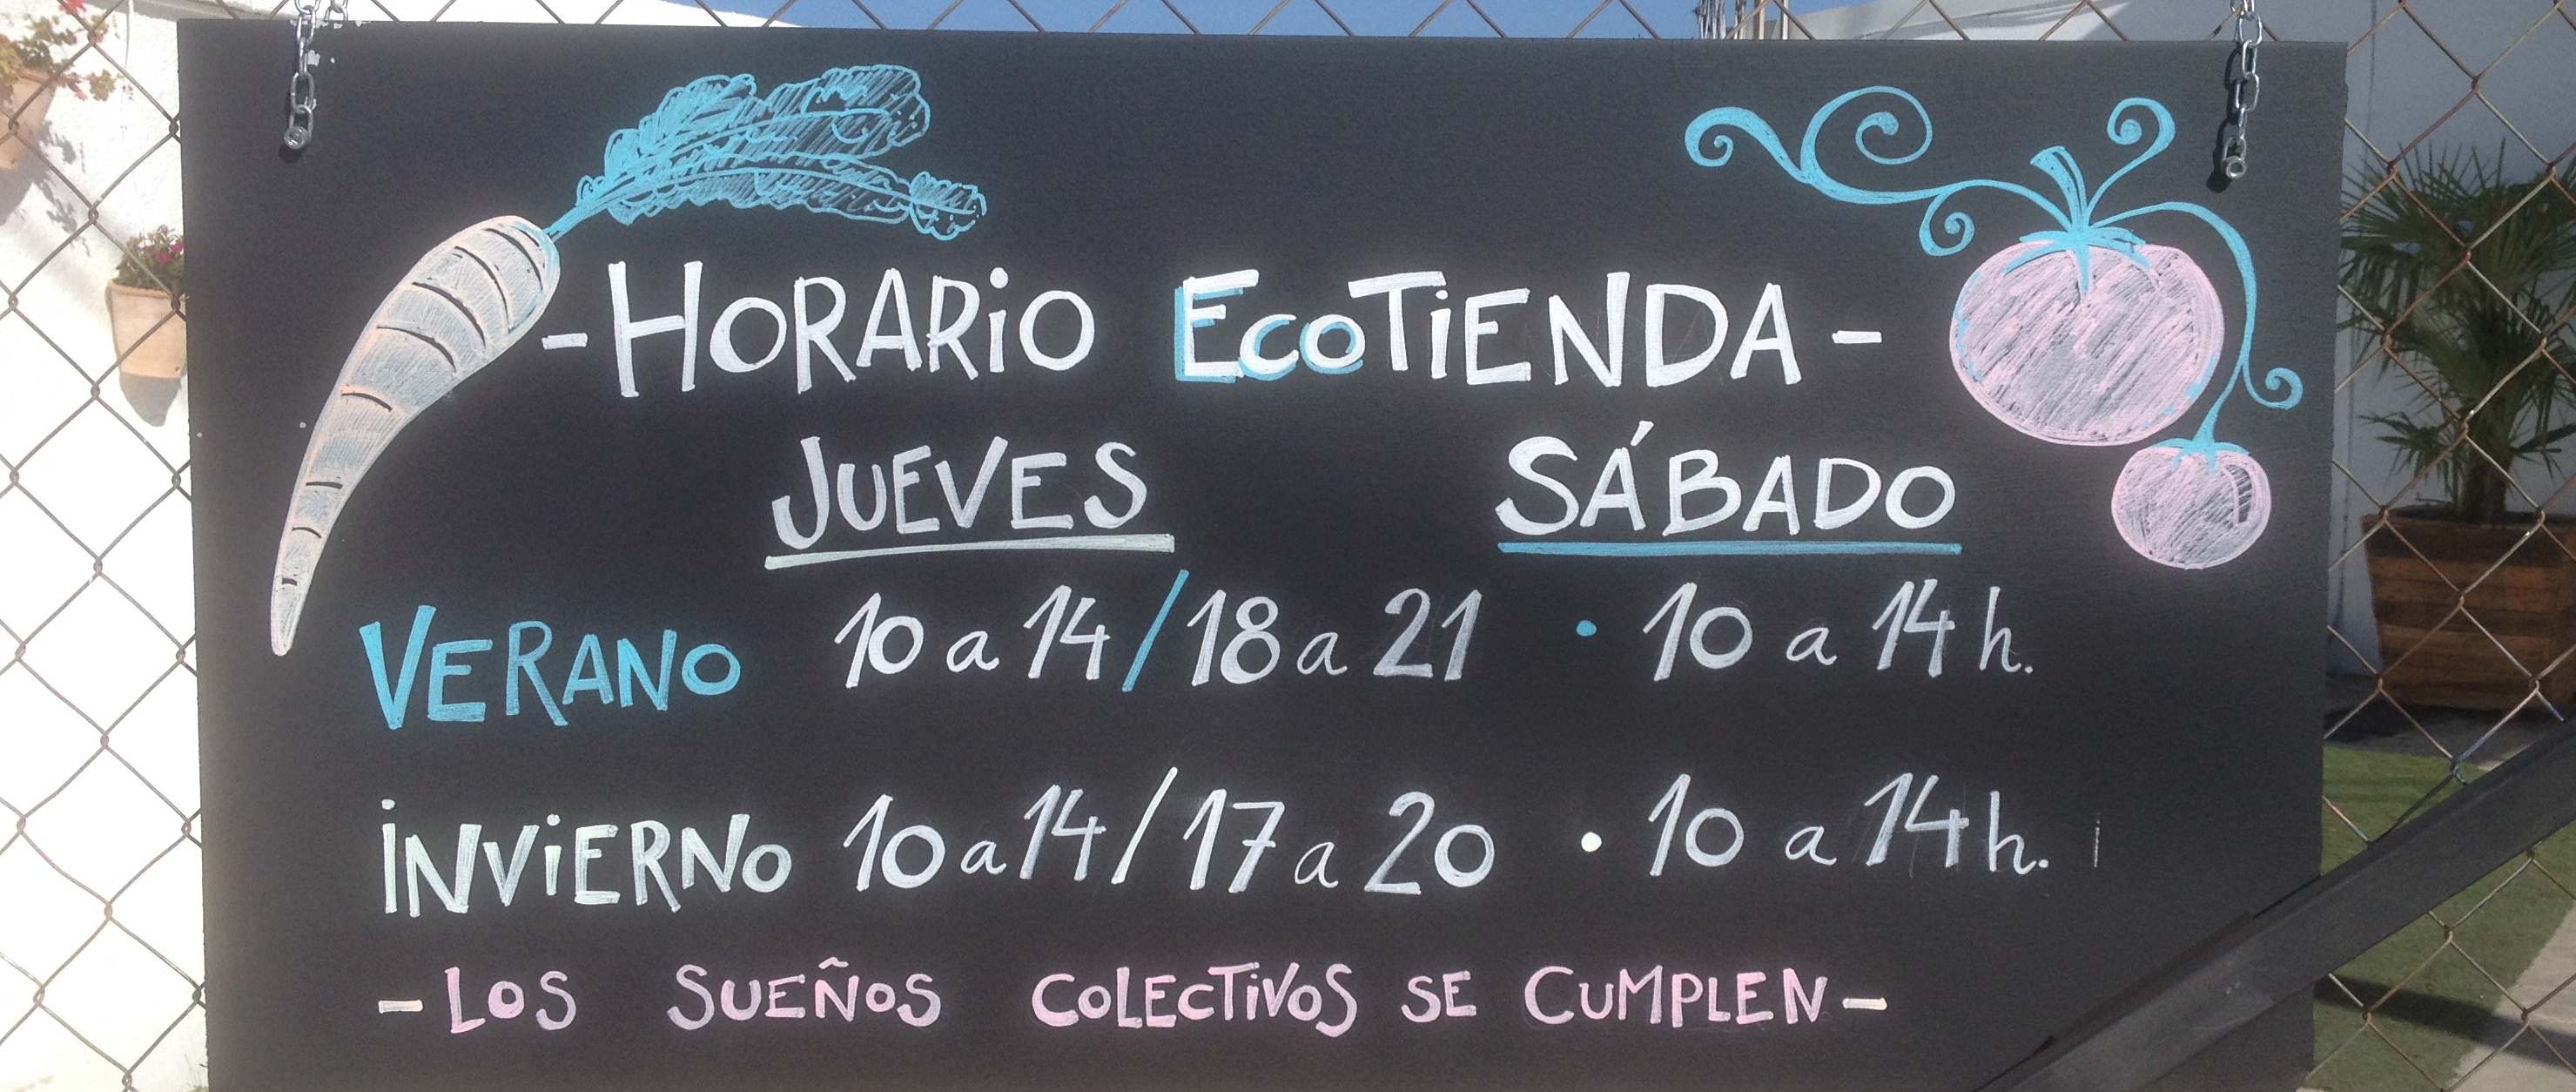 - HORARIO ECOTIENDA -
JUEVES SÁBADO
VERANO 10 a 14 / 18 a 21 · 10 a 14 h.
INVIERNO 10 a 14 / 17 a 20 · 10 a 14 h.
- LOS SUEÑOS COLECTIVOS SE CUMPLEN -